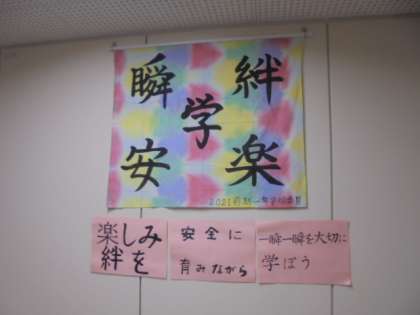 瞬 絆
学
安 楽
2021前期一年学級委員
楽しみ
絆を
安全に
育みながら
一瞬一瞬を大切に
学ぼう